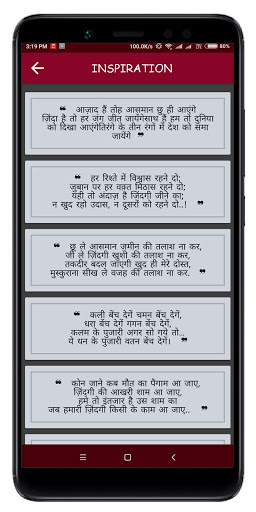 3:19 PM
100.0K/s
80%
INSPIRATION
❝ आज़ाद हैं तोह आसमान छू ही आएंगे
ज़िंदा है तो हर जंग जीत जायेंगेसाथ हैं हम तो दुनिया
को दिखा आएंगेतिरंगे के तीन रंगों में देश को समा
जायेंगे ❞
❝ हर रिश्ते में विश्वास रहने दो;
जुबान पर हर वक़्त मिठास रहने दो;
यही तो अंदाज़ है जिंदगी जीने का;
न खुद रहो उदास, न दूसरों को रहने दो..! ❞
❝ छू ले आसमान ज़मीन की तलाश ना कर,
जी ले ज़िंदगी खुशी की तलाश ना कर,
तकदीर बदल जाएगी खुद ही मेरे दोस्त,
मुस्कुराना सीख ले वजह की तलाश ना कर. ❞
❝ कली बेंच देगें चमन बेंच देगें,
धरा बेंच देगें गगन बेंच देगें,
कलम के पुजारी अगर सो गये तो...
ये धन के पुजारी वतन बेंच देगें। ❞
❝ कोन जाने कब मौत का पैगाम आ जाए,
ज़िंदगी की आखरी शाम आ जाए,
हमें तो इंतजार है उस शाम का
जब हमारी ज़िंदगी किसी के काम आ जाए.. ❞